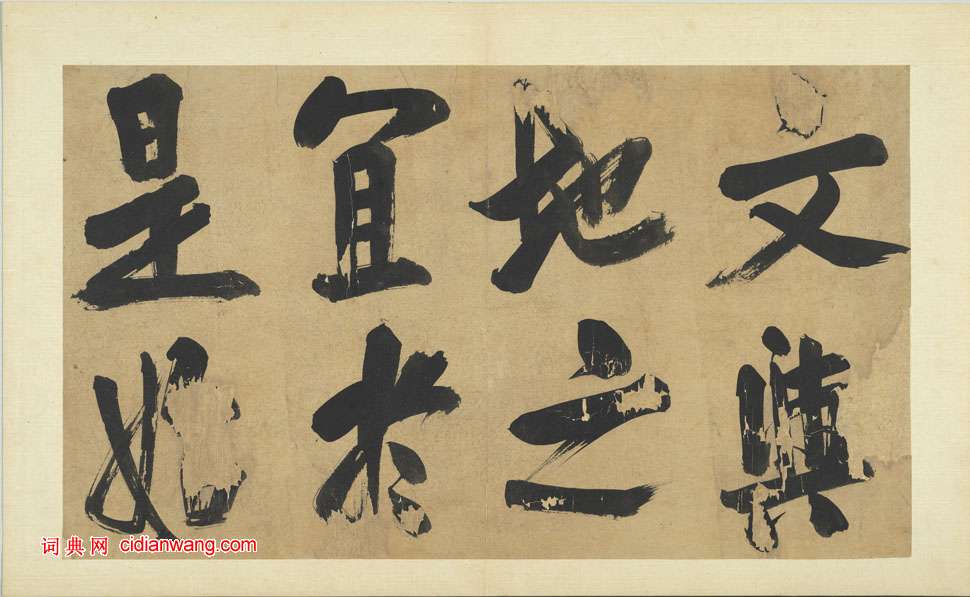 文與
地之
宜於
是始
词典网 cidianwang.com